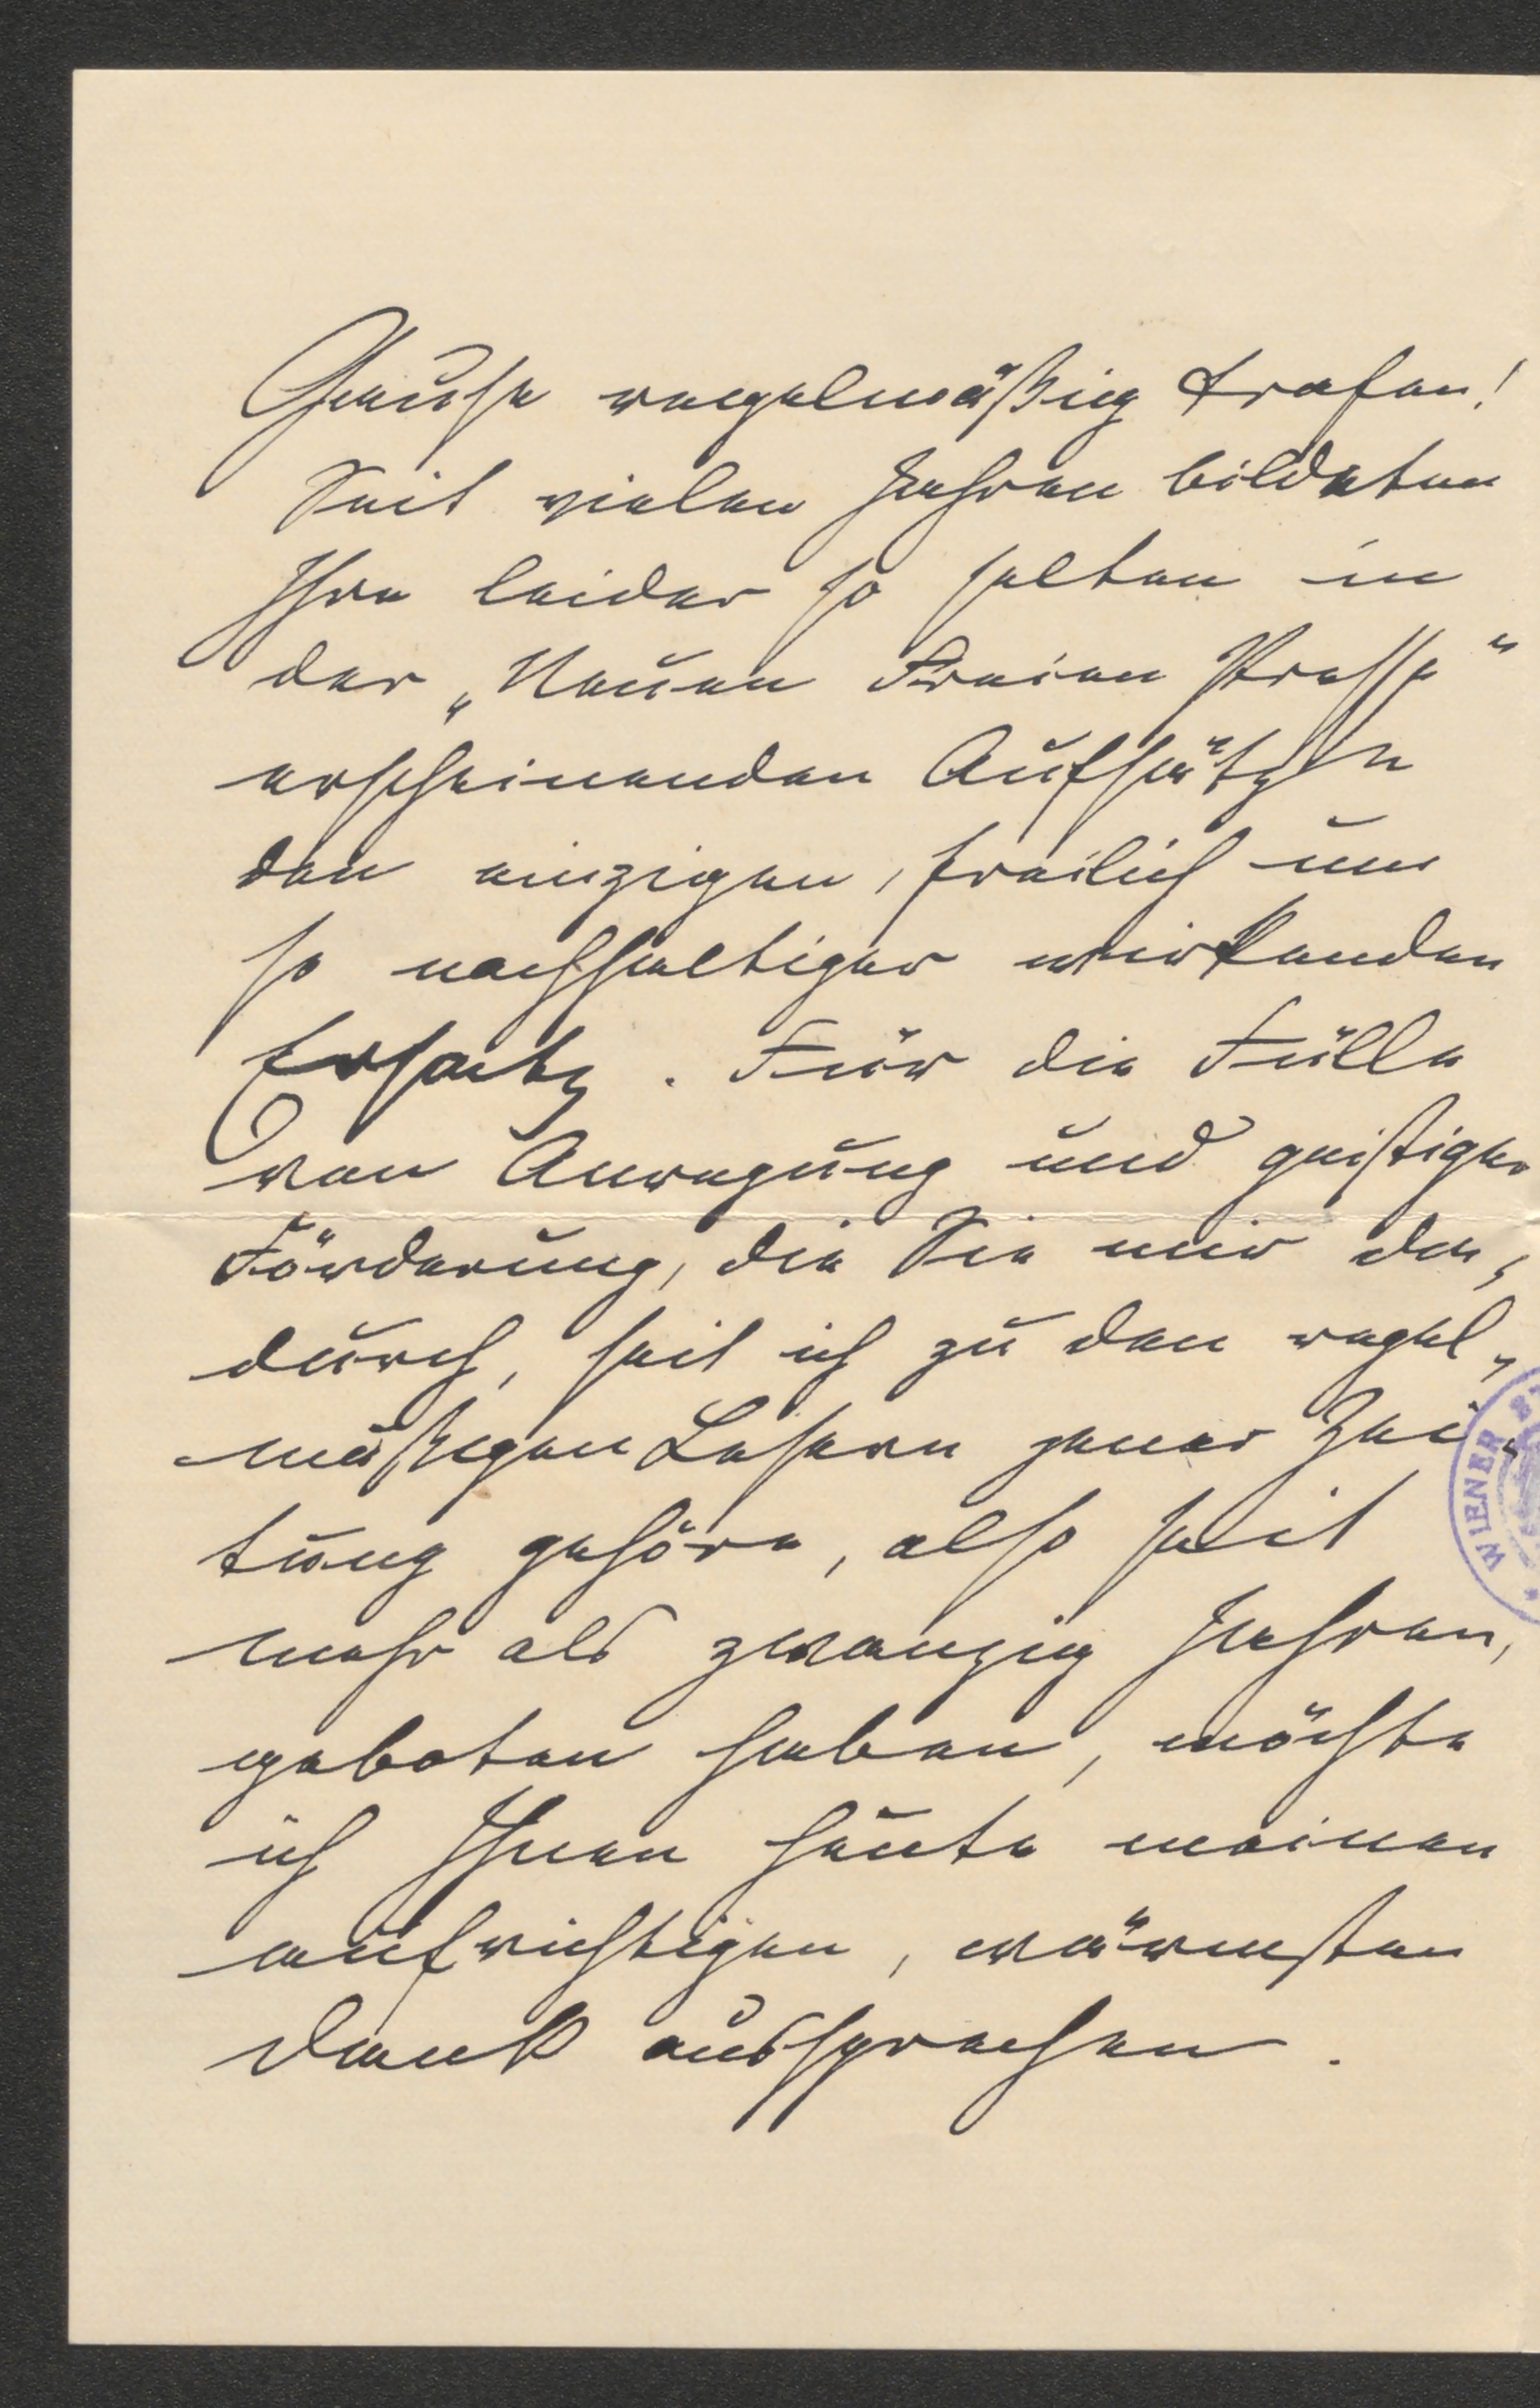 Hause regelmäßig trafen!
Seit vielen Jahren bildeten
Ihre leider so selten in
der „Neuen Freien Presse“
erscheinenden Aufsätze
den einzigen, freilich um
so nachhaltiger wirkenden
Ersatz. Für die Fülle
von Anregung und geistiger
Förderung, die Sie mir da-
durch, seit ich zu den regel-
mäßigen Lesern jener Zei-
tung gehöre, also seit
mehr als zwanzig Jahren,
geboten haben, möchte
ich Ihnen heute meinen
aufrichtigen, wärmsten
Dank aussprechen.
WIENER